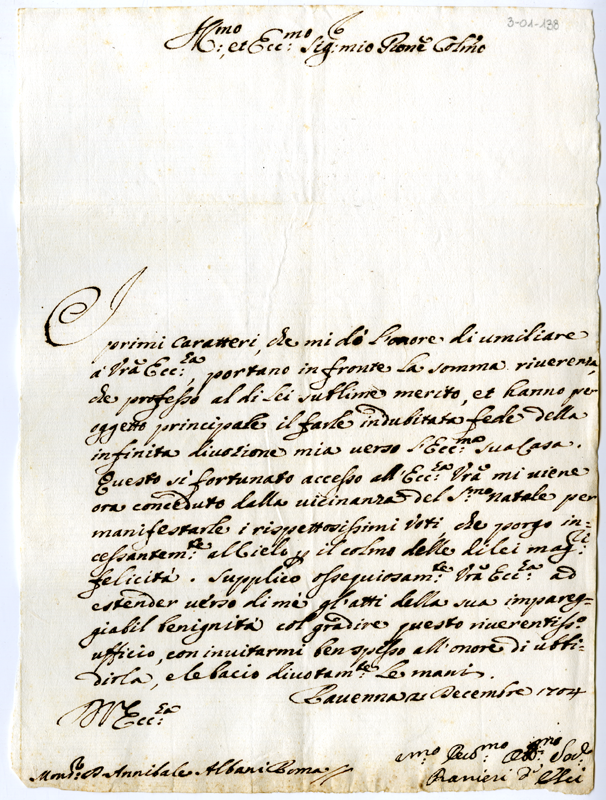 3-01-138
Ill.mo, et Ecc.mo Sig.r mio Prone Colmo
I primi Caratteri, che mi dò l'onore di umiliare
a Vrã Ecc.za, portano in fronte la somma riverenza,
che professo al di Lei sublime merito, et hanno per
oggetto principale il farle indubitata fede della
infinita divozione mia verso l'Ecc.ma sua Casa.
Questo sì fortunato accesso all'Ecc.za Vrã mi viene
ora conceduto dalla vicinanza del S.mo Natale per
manifestarle i rispettosissimi voti che porgo in=
cessantem.te al Cielo p il colmo delle di lei mag.ri
felicità. Supplico ossequiosam.te Vrã Ecc.za ad
estender verso di mè gl'atti della sua impareg=
giabil benignità col gradire questo riverentiss.o
ufficio, con invitarmi ben spesso all'onore di ubbi=
dirla, e le bacio divotam.te le mani.
Ravenna Decembre 1704
Di V Ecc.za
Mons.r D Annibale Albani Roma
Ranieri d'Elci